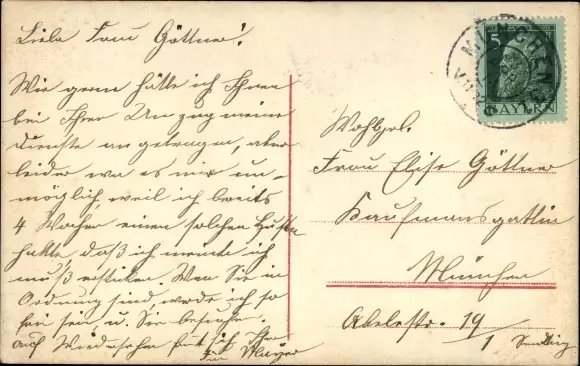 Liebe Frau Göttner!
Wie gerne hätte ich Ihnen
bei Ihrer Umzug meine
Dienste an getragen, aber
leider war es mir un-
möglich, weil ich bereits
4 Wochen einen solchen Husten
hatte, daß ich meinte ich
muß ersticken. Wenn Sie in
Ordnung sind, werde ich so
frei sein u. Sie besuchen.
Auf Wiedersehen
Mayer
MÜNCHEN
5
BAYERN
Wohlgeb.
Frau Elise Göttner
Kaufmannsgattin
München
Abelestr. 19
1